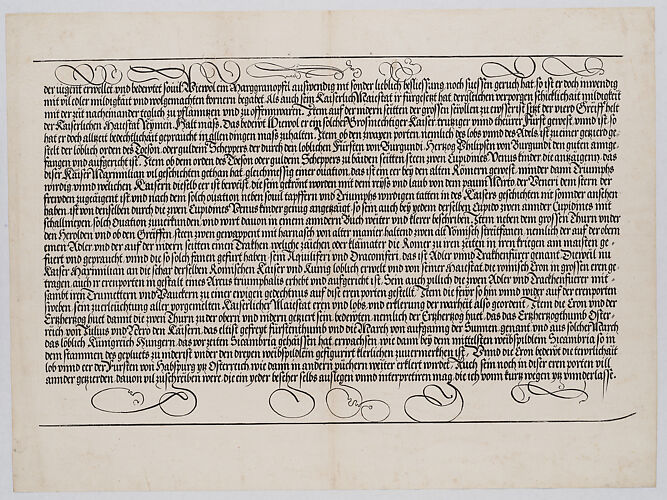 der tugent erwellet vnd bedewtet souil. Wiewol ein Marggranopfl auswendig mit sonder lieblich besliessung noch suessen geruch hat, so ist er doch inwendig
mit vil edler mildigkait vnd wolgemachten kornern begabet. Als auch sein Kaiserlich Maiestat ir fürgesetzt hat, dergleichen verporgen schicklichait mildigkait
mit der zeit nacheinander teglich zu pflanntzen vnd zu offennwaren. Item auf der andern seitten der grossen sewllen zu eysserist sitzt der vierd Greiff helt
der Kaiserlichen Maiestat Reymen. Halt mass. Das bedewt Wiewol er ein solcher Grosmechtiger Kaiser tetziger vnnd thewrer Fürst gewest vnnd ist, so
hat er doch allzeit bedechtlichait gepraucht in allen dingen mass zuhalten. Item ob den zwayen porten nemlich des lobs vnnd des Adels, ist zu einer gezierd ge-
stellt der löblich orden des Toson, oder gulden Scheppers, der durch den loblichen Fürsten von Burgundi, Hertzog Philipsen von Burgundi den guten annge-
fangen vnd aufgericht ist. Item ob dem orden des Toson oder gulden Scheppers zu baiden seitten steen zwen Cupidines Venus kinder, die antzaigenn, das
diser Kaiser Maximilian vil geschichten gethan hat, gleichmessig einer ouation, das ist ein eer bey den alten Romern gewest, minder dann Triumphs
wirdig, vnnd welchen Kaisern dieselb eer ist beweist, die sein gekrönt worden mit dem reyss vnd laub von dem paum Mirto, der Veneri dem stern der
frewden zugeaigent ist, vnd nach dem solch ouation neben souil tapffern vnd Triumphs wirdigen tatten in des Kaisers geschichten nit sonder ansehen
haben, ist von denselben durch die zwen Cupidines Venus kinder genug angezaigt, so sein auch bey yedem derselben Cupido zwen annder Cupidines mit
schallmeyen, solch Ouation zuuerkunden, vnd wirt dauon in einem anndern Buech weiter vnd klerer beschriben. Item neben dem grossen Thurn vnder
den Herolden vnd ob den Greiffen, steen zwen gewappent mit harnasch von alter manier, haltend zwen alt Römisch streitfanen, nemlich der auf der obern
einen Adler, vnd der auf der andern seitten einen Trackhen, weliche zaichen oder klainater die Romer zu iren zeiten in iren kriegen am maisten ge-
fuert vnd gepraucht, vnnd die so solch fanen gefürt haben, sein Aquiliferi vnd Draconiferi, das ist Adler vnnd Trackhenfürer genant. Dieweil nu
Kaiser Maximilian an die schar derselben Romischen Kaiser vnd Kunig loblich erwelt vnd von seiner Maiestat die romisch Cron in grossen eren ge-
tragen, auch ir eren porten in gestalt eines Arcus triumphalis erhebt vnd aufgericht ist. Sein auch pillich die zwen Adler vnd Trackhenfürer mit
sambt iren Trumettern vnd Pauckern zu einer ewigen gedechtnus auf dise eren porten gestellt. Item die ketzr so hin vnnd wider auf der eren porten
sweben, sein zu erleuchtung aller vorgemelten Kaiserlicher Maiestat eren vnd lobs, vnd erklerung der warheit also geordent. Item die Cron vnd der
Ertzhertzog huet damit die zwen Thurn zu der obern vnd vndern getziert sein, bedewten nemlich der Ertzhertzog huet, das das Ertzhertzogthumb Oster-
reich von Julius vnd Nero den Kaisern, das eltist gefreyt fürstenthumb, vnd die March von aufgang der Sunnen genant, vnd aus solcher March
das löblich Kunigreich Hungern, das vor zeiten Sicambria gehaissen hat, erwachsen, wie dann bey dem mittelsten weibspildlein Sicambria, so in
dem stammen des gepluets zu vnderist vnder den dreyen weibspildlein gefigurirt, klerlichen zuuermerkhen ist. Vnnd die Cron bedewt die teworlichait
lob vnnd eer der Fürsten von Habspurg ytz Osterreich, wie dann in andern püchern weiter erklert wirdet. Auch sein noch in diser eren porten vill
annder getzierden, dauon vil zuschreiben were, die ein yeder bescher selbs auslegen vnnd interpretiren mag, die ich vonn kurtz wegen ytz vnnderlasse.